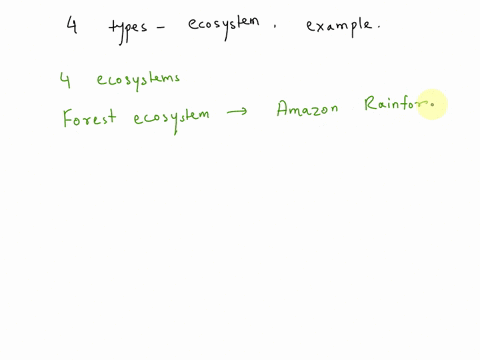 4 types - ecosystem. example.
4 ecosystems
Forest ecosystem → Amazon Rainfor